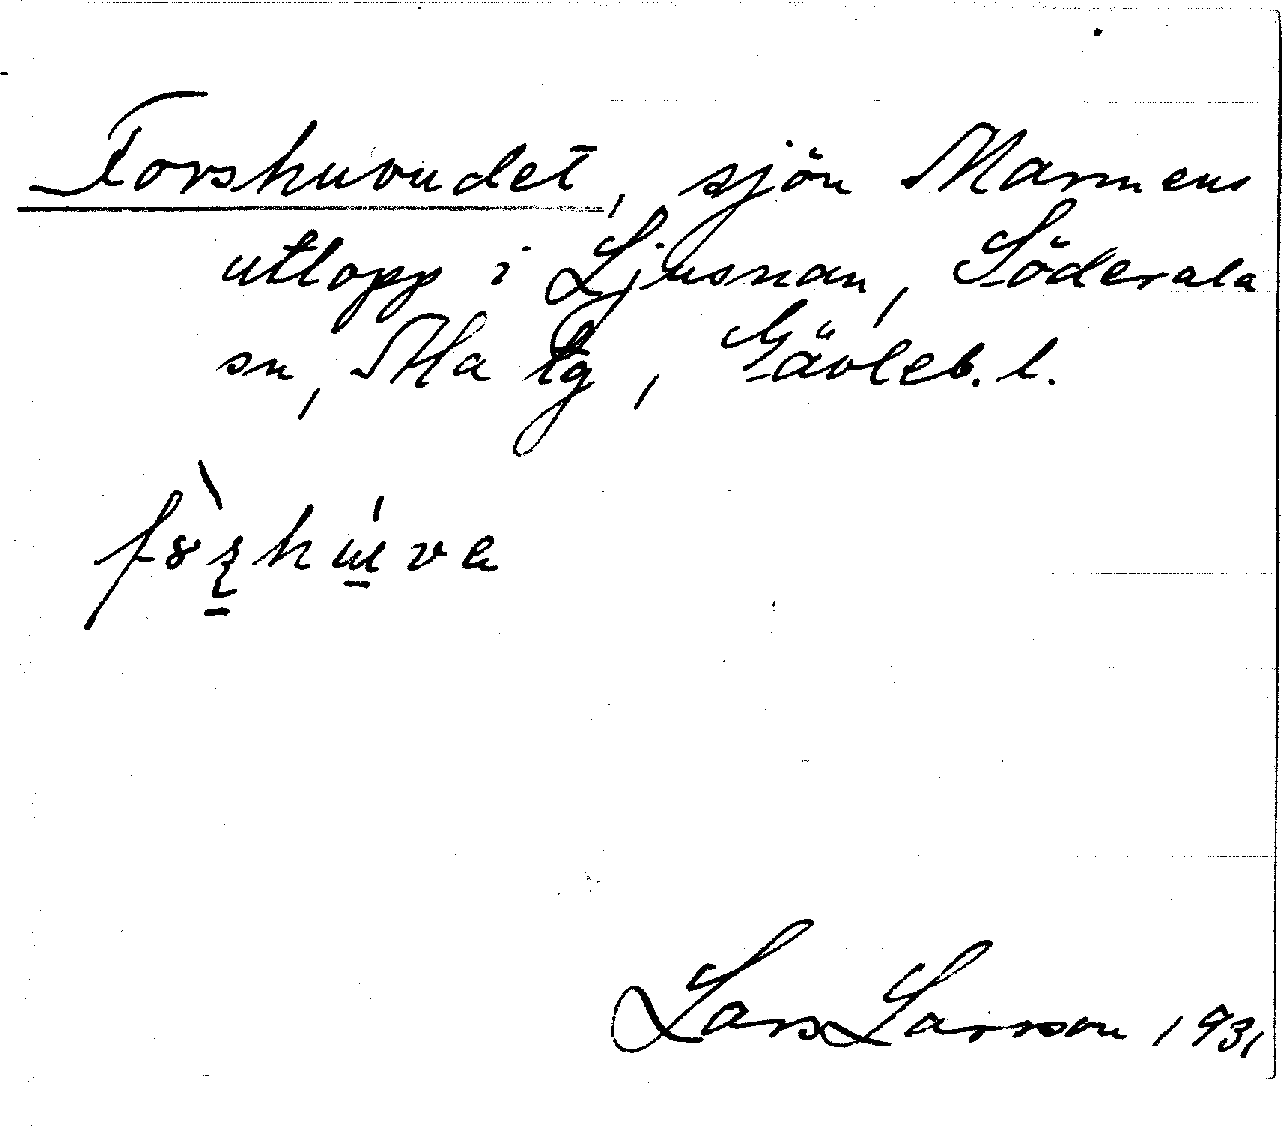 Forshuvudet, sjön Marmens
utlopp i Ljusnan, Söderala
sn, Ala tg, Gävleb. l.
Lars Larsson 1931